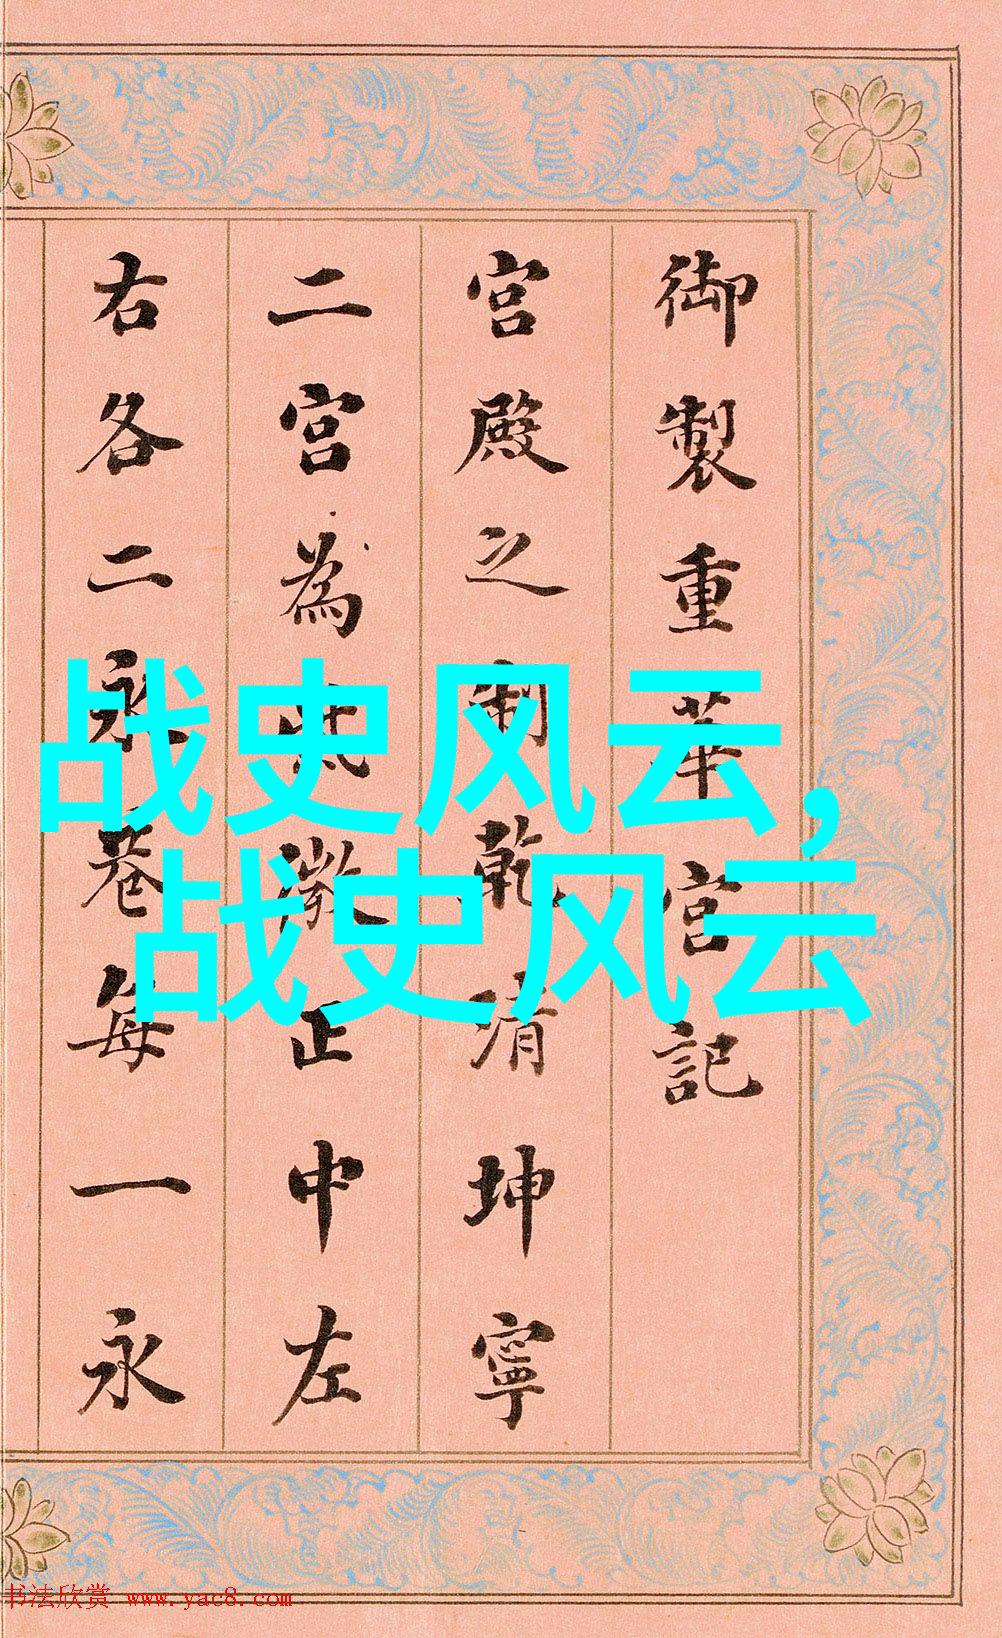 御製重華宮記
宮殿之制乾清坤寧
二宮為紫微正中左
右各二永巷每一永
战史风云,
战史风云
书法欣赏 www.yac8.com